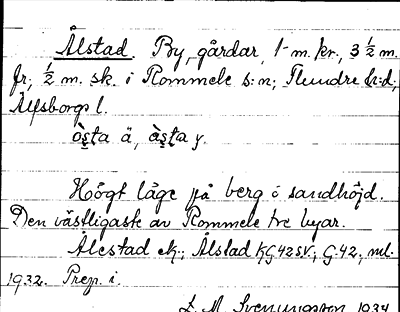 Ålstad. By, gårdar, 1 m. kr., 3 ½ m.
fr., ½ m. sk. i Rommele s:n; Flundre h:d;
Älfsborgs l.
ò̀sta ä, à̀sta y.
Högt läge på berg o sandhöjd.
Den västligaste av Rommele tre byar.
Ålestad ek.; Ålstad KG42SV.; G.42, ml.
1932. Prep. i.
D. M. Svenningsson 1934